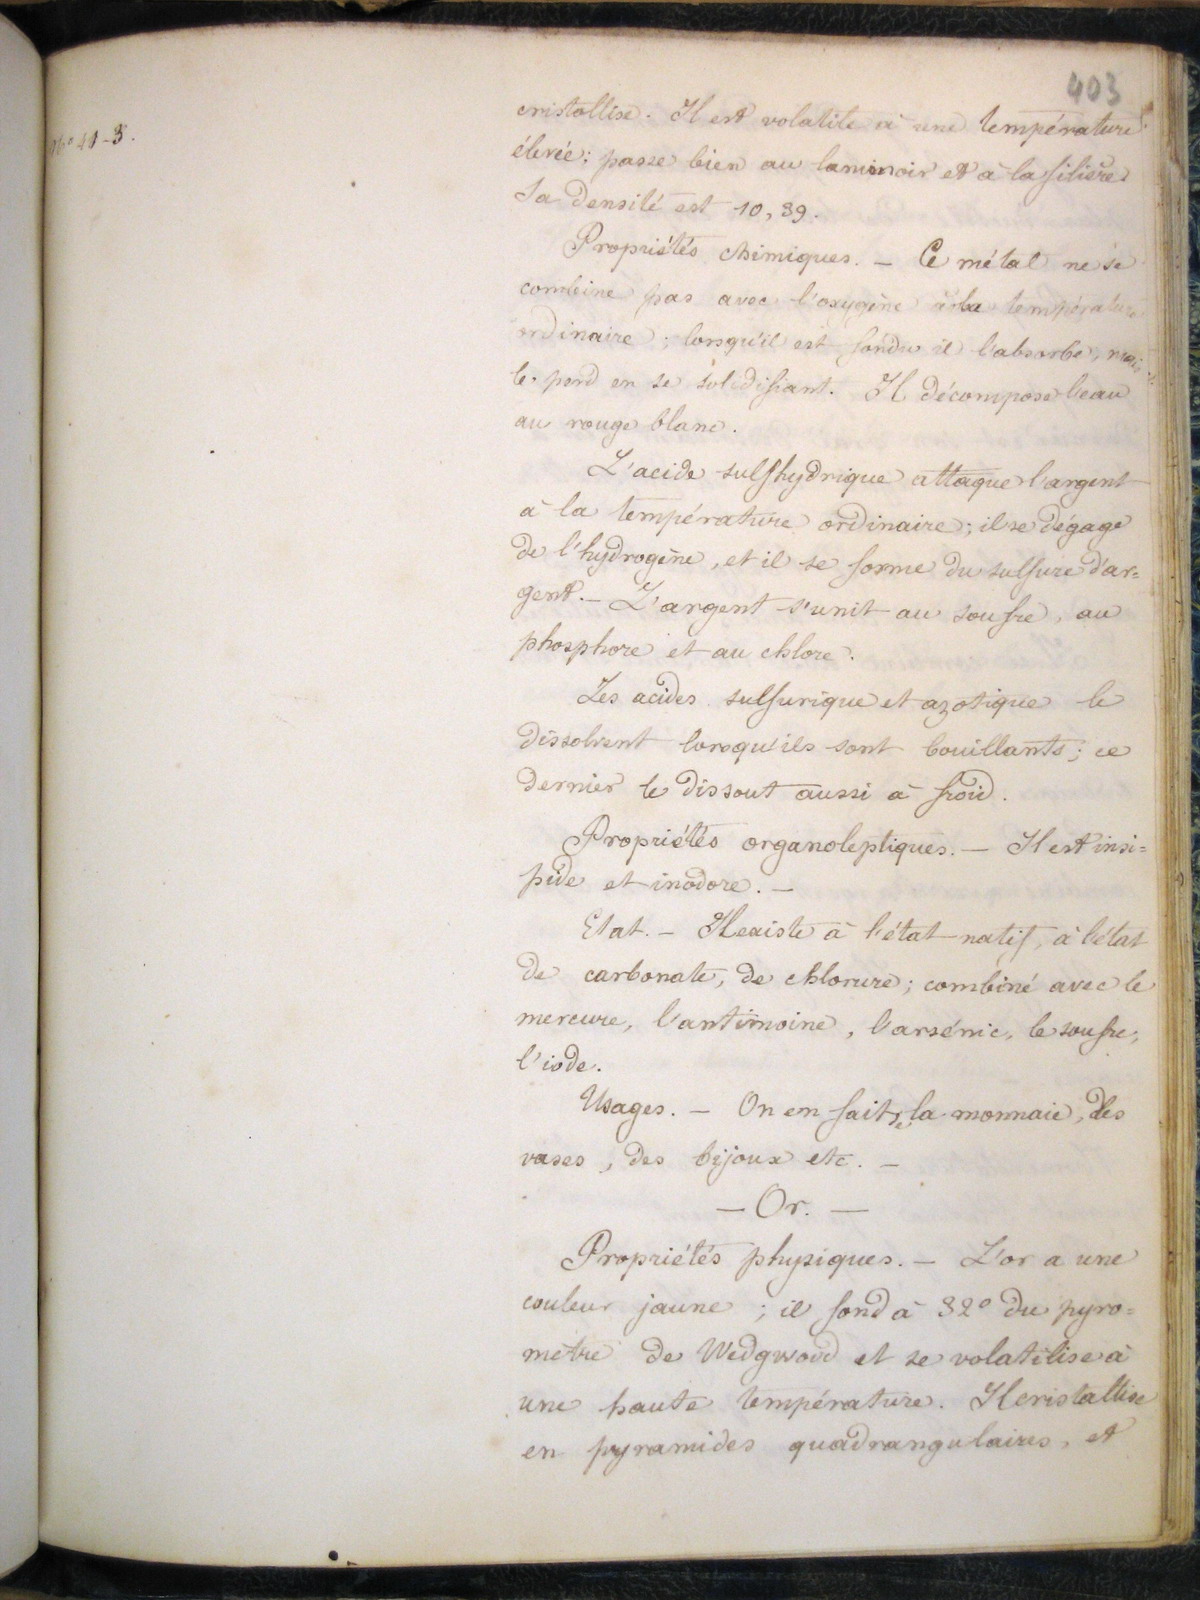 403
No 41-3.
cristallise. Il est volatile à une température
élevée; passe bien au laminoir et à la filière.
Sa densité est 10,39.
Propriétés chimiques. — Ce métal ne se
combine pas avec l'oxygène à la température
ordinaire; lorsqu'il est fondu il l'absorbe, mais il
le perd en se solidifiant. Il décompose l'eau
au rouge blanc.
L'acide sulfhydrique attaque l'argent
à la température ordinaire; il se dégage
de l'hydrogène, et il se forme du sulfure d'ar=
gent. — L'argent s'unit au soufre, au
phosphore et au chlore.
Les acides sulfurique et azotique le
dissolvent lorsqu'ils sont bouillants; ce
dernier le dissout aussi à froid.
Propriétés organoleptiques. — Il est insi=
pide et inodore. —
Etat. — Il existe à l'état natif, à l'état
de carbonate, de chlorure; combiné avec le
mercure, l'antimoine, l'arsénic, le soufre,
l'iode.
Usages. — On en fait de la monnaie, des
vases, des bijoux etc. —
— Or. —
Propriétés physiques. — L'or a une
couleur jaune; il fond à 32° du pyro=
mètre de Wedgwood et se volatilise à
une haute température. Il cristallise
en pyramides quadrangulaires, et